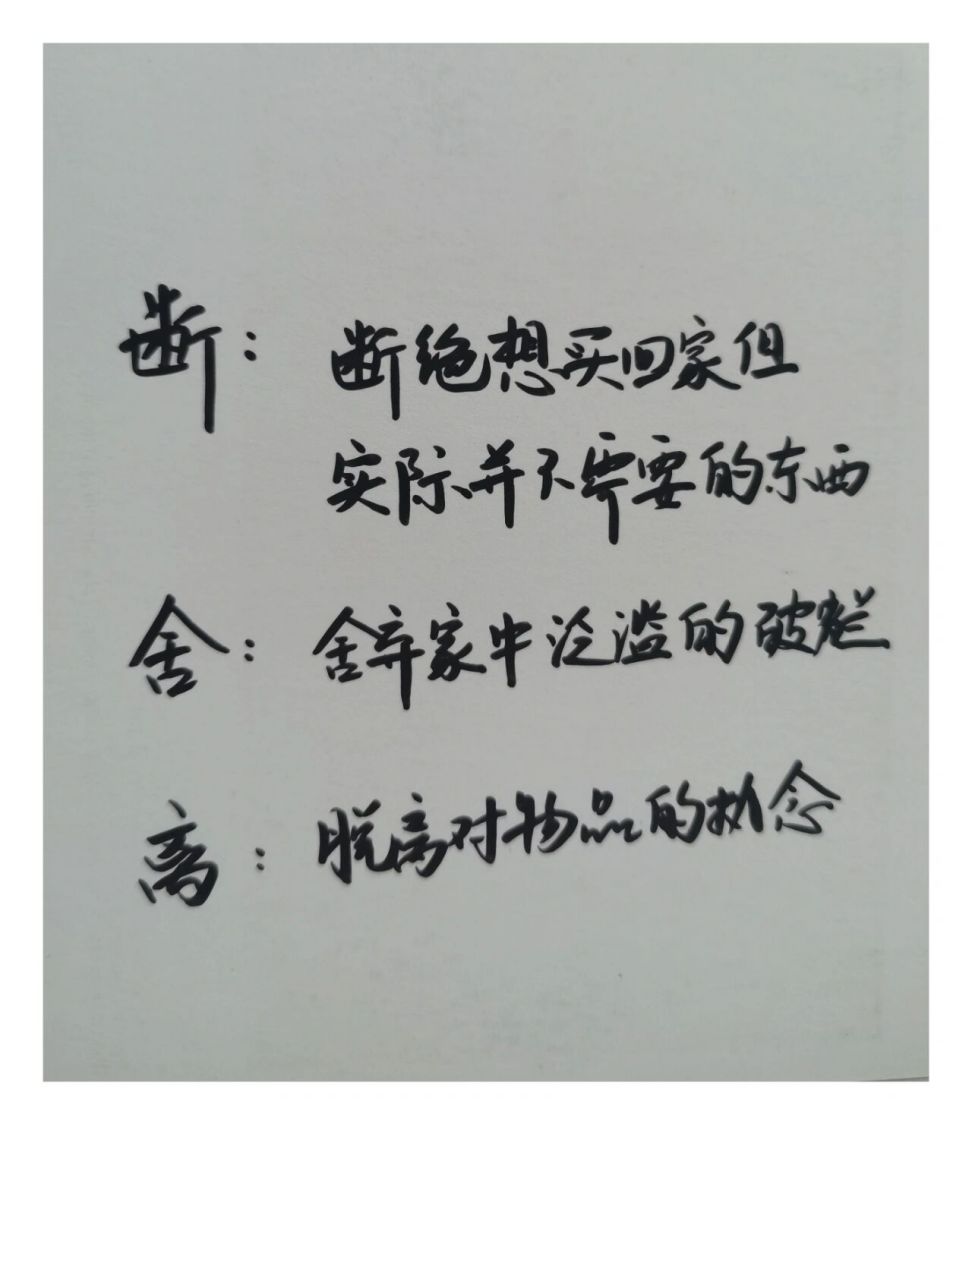 断：断绝想买回家但
实际并不需要的东西
舍：舍弃家中泛滥的破烂
离：脱离对物品的执念